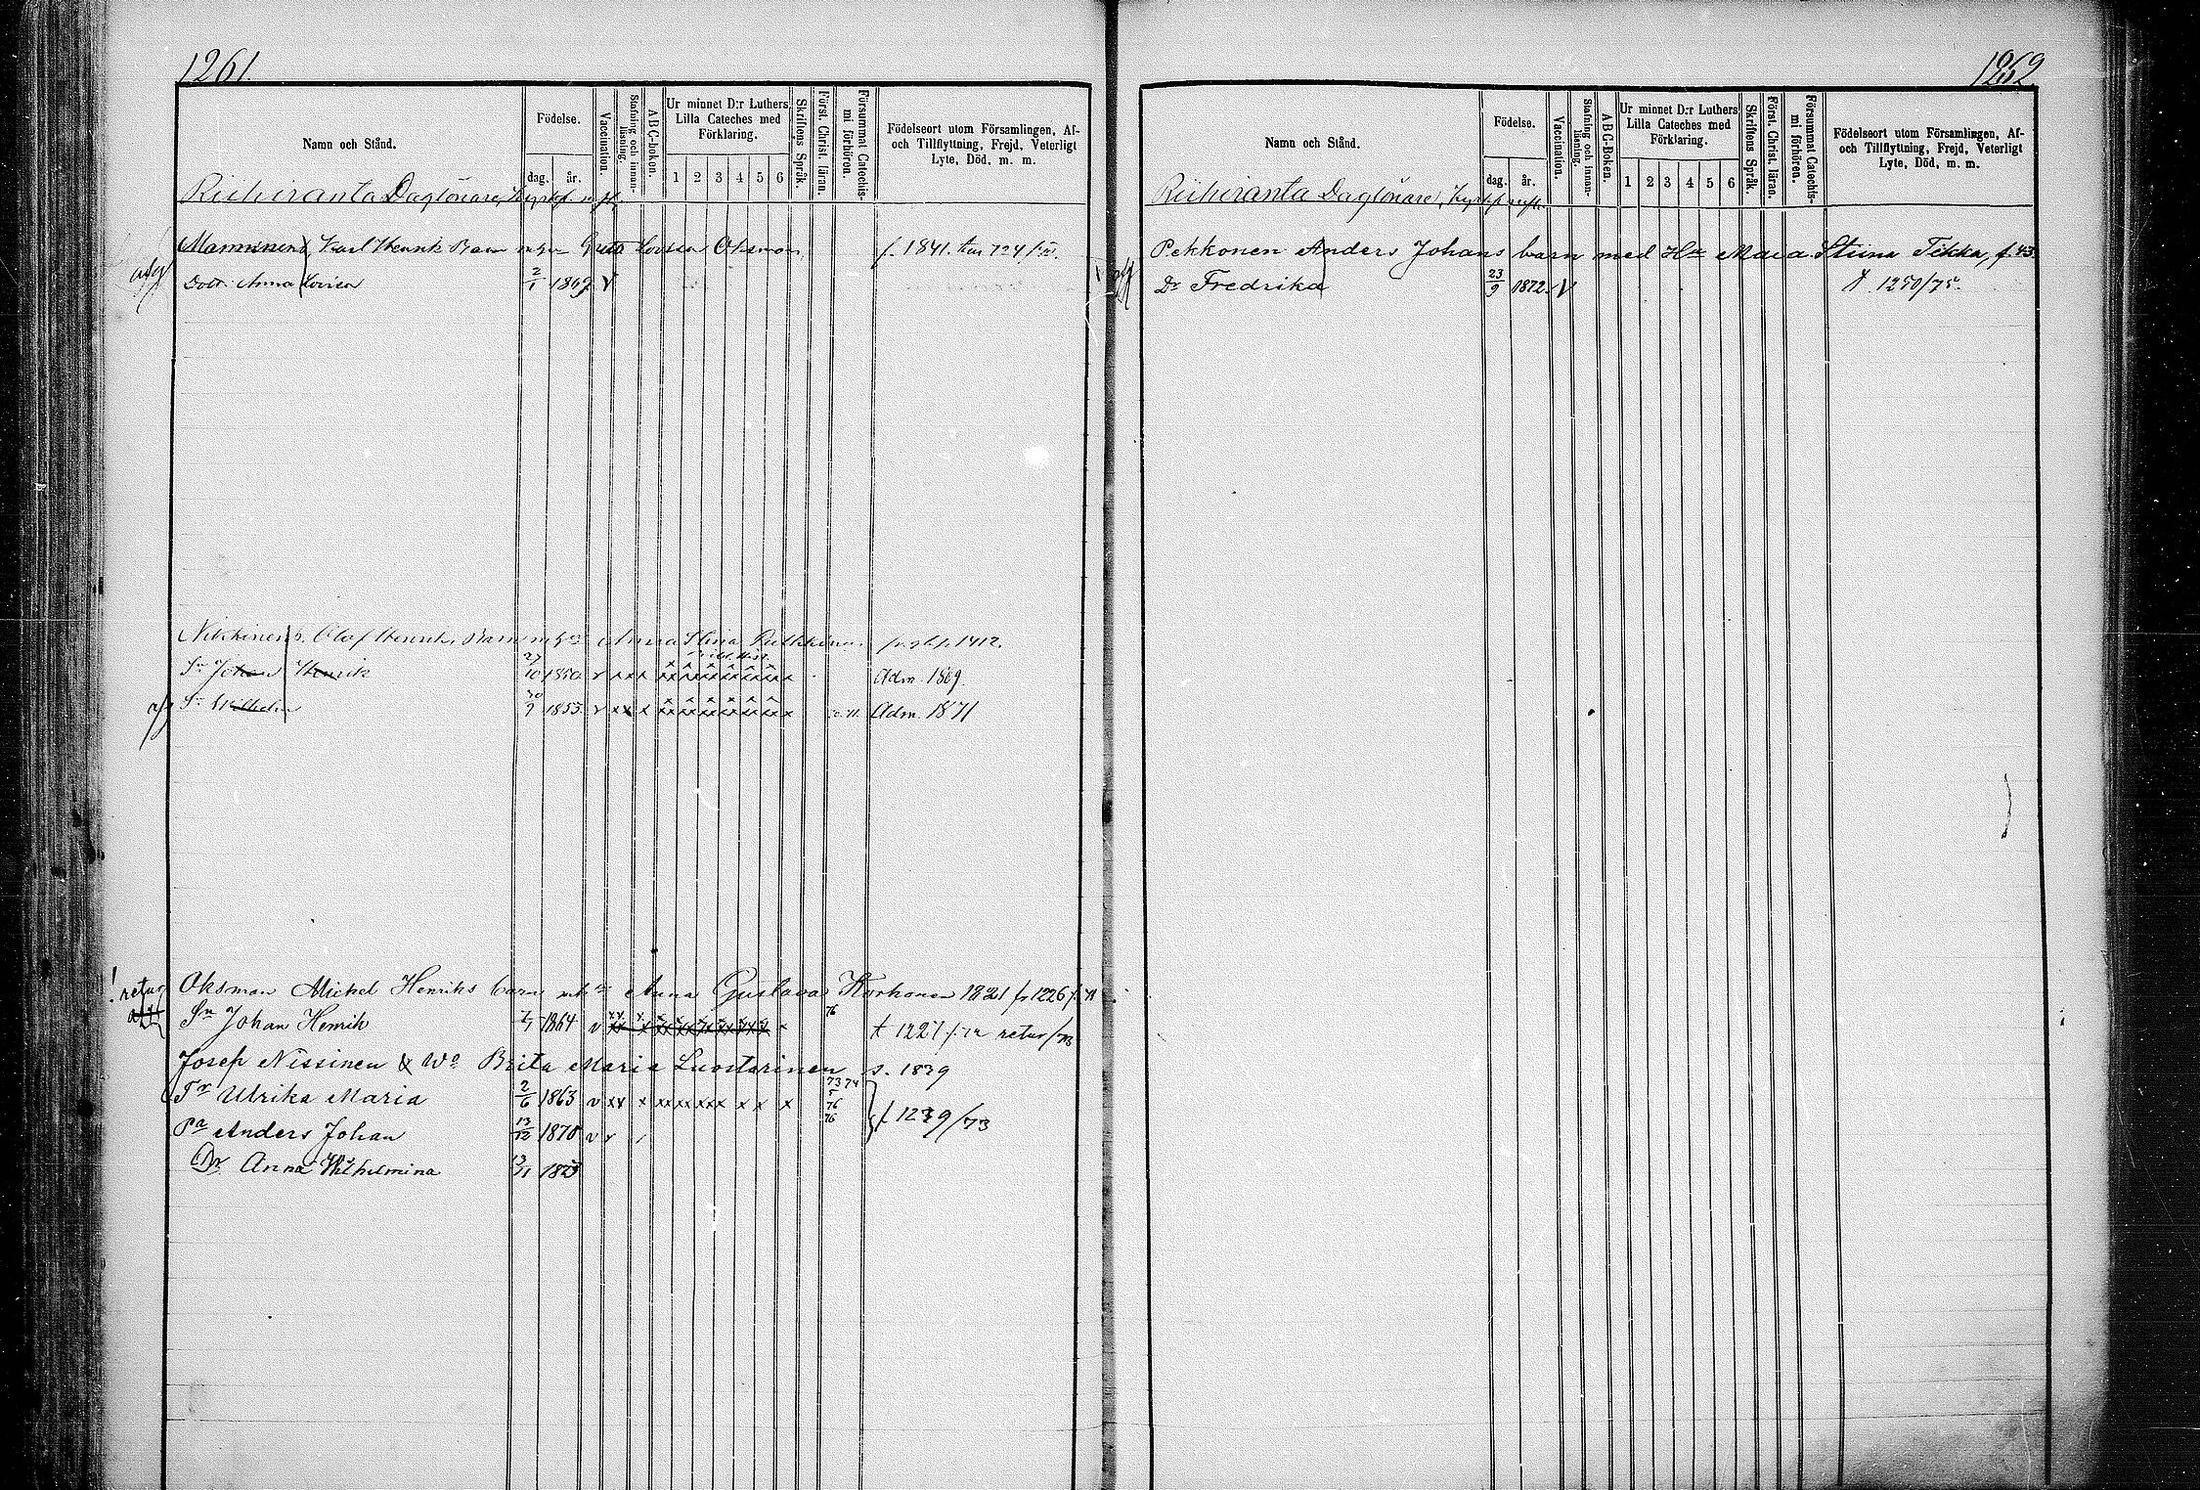 1261.
Namn och Stånd.
Födelse.
dag. år.
Vaccination.
Stafning och innan-
läsning.
ABC-boken.
Ur minnet D:r Luthers
Lilla Cateches med
Förklaring.
1 2 3 4 5 6
Skriftens Språk.
Först. Christ. läran.
Försummat Catechis-
mi förhören.
Födelseort utom Församlingen, Af-
och Tillflyttning, Frejd, Veterligt
Lyte, Död, m. m.
Riihiranta Daglönare,
Manninen, Karl Henrik Barn Greta Lovisa Oksman f. 1841.
Dott. Anna Lovisa 2/1 1869 V
Nikkinens, Olof Henrik, Barn Anna Stina 1412.
Sn Johan Henrik 27/10 1850 Adm. 1869.
Sn Wilhelm 30/9 1853 Adm. 1871
retur Oksman Mickel Henriks barn Anna Gustava Korhonen 1821 fr 1226
Sn Johan Henrik 1864 v 76 t 1227 retur
Josef Nissinen & Wa Brita Maria Luostarinen s. 1839
Tr Ulrika Maria 2/6 1863 v xx x x x x 73 74
5
76
76
Pa Anders Johan 13/12 1870 v f 1239/73
Dr Anna Wilhelmina 13/11
1262
Namn och Stånd.
Födelse.
dag. år.
Vaccination.
Stafning och innan-
läsning.
ABC-Boken.
Ur minnet D:r Luthers
Lilla Cateches med
Förklaring.
1 2 3 4 5 6
Skriftens Språk.
Först. Christ. läran.
Försummat Catechis-
mi förhören.
Födelseort utom Församlingen, Af-
och Tillflyttning, Frejd, Veterligt
Lyte, Död, m. m.
Riihiranta Daglönare,
Pekkonen Anders Johans barn med Hu Maia Stiina Tikka, f. 43.
Dr Fredrika 23/9 1872. V 1250/75.